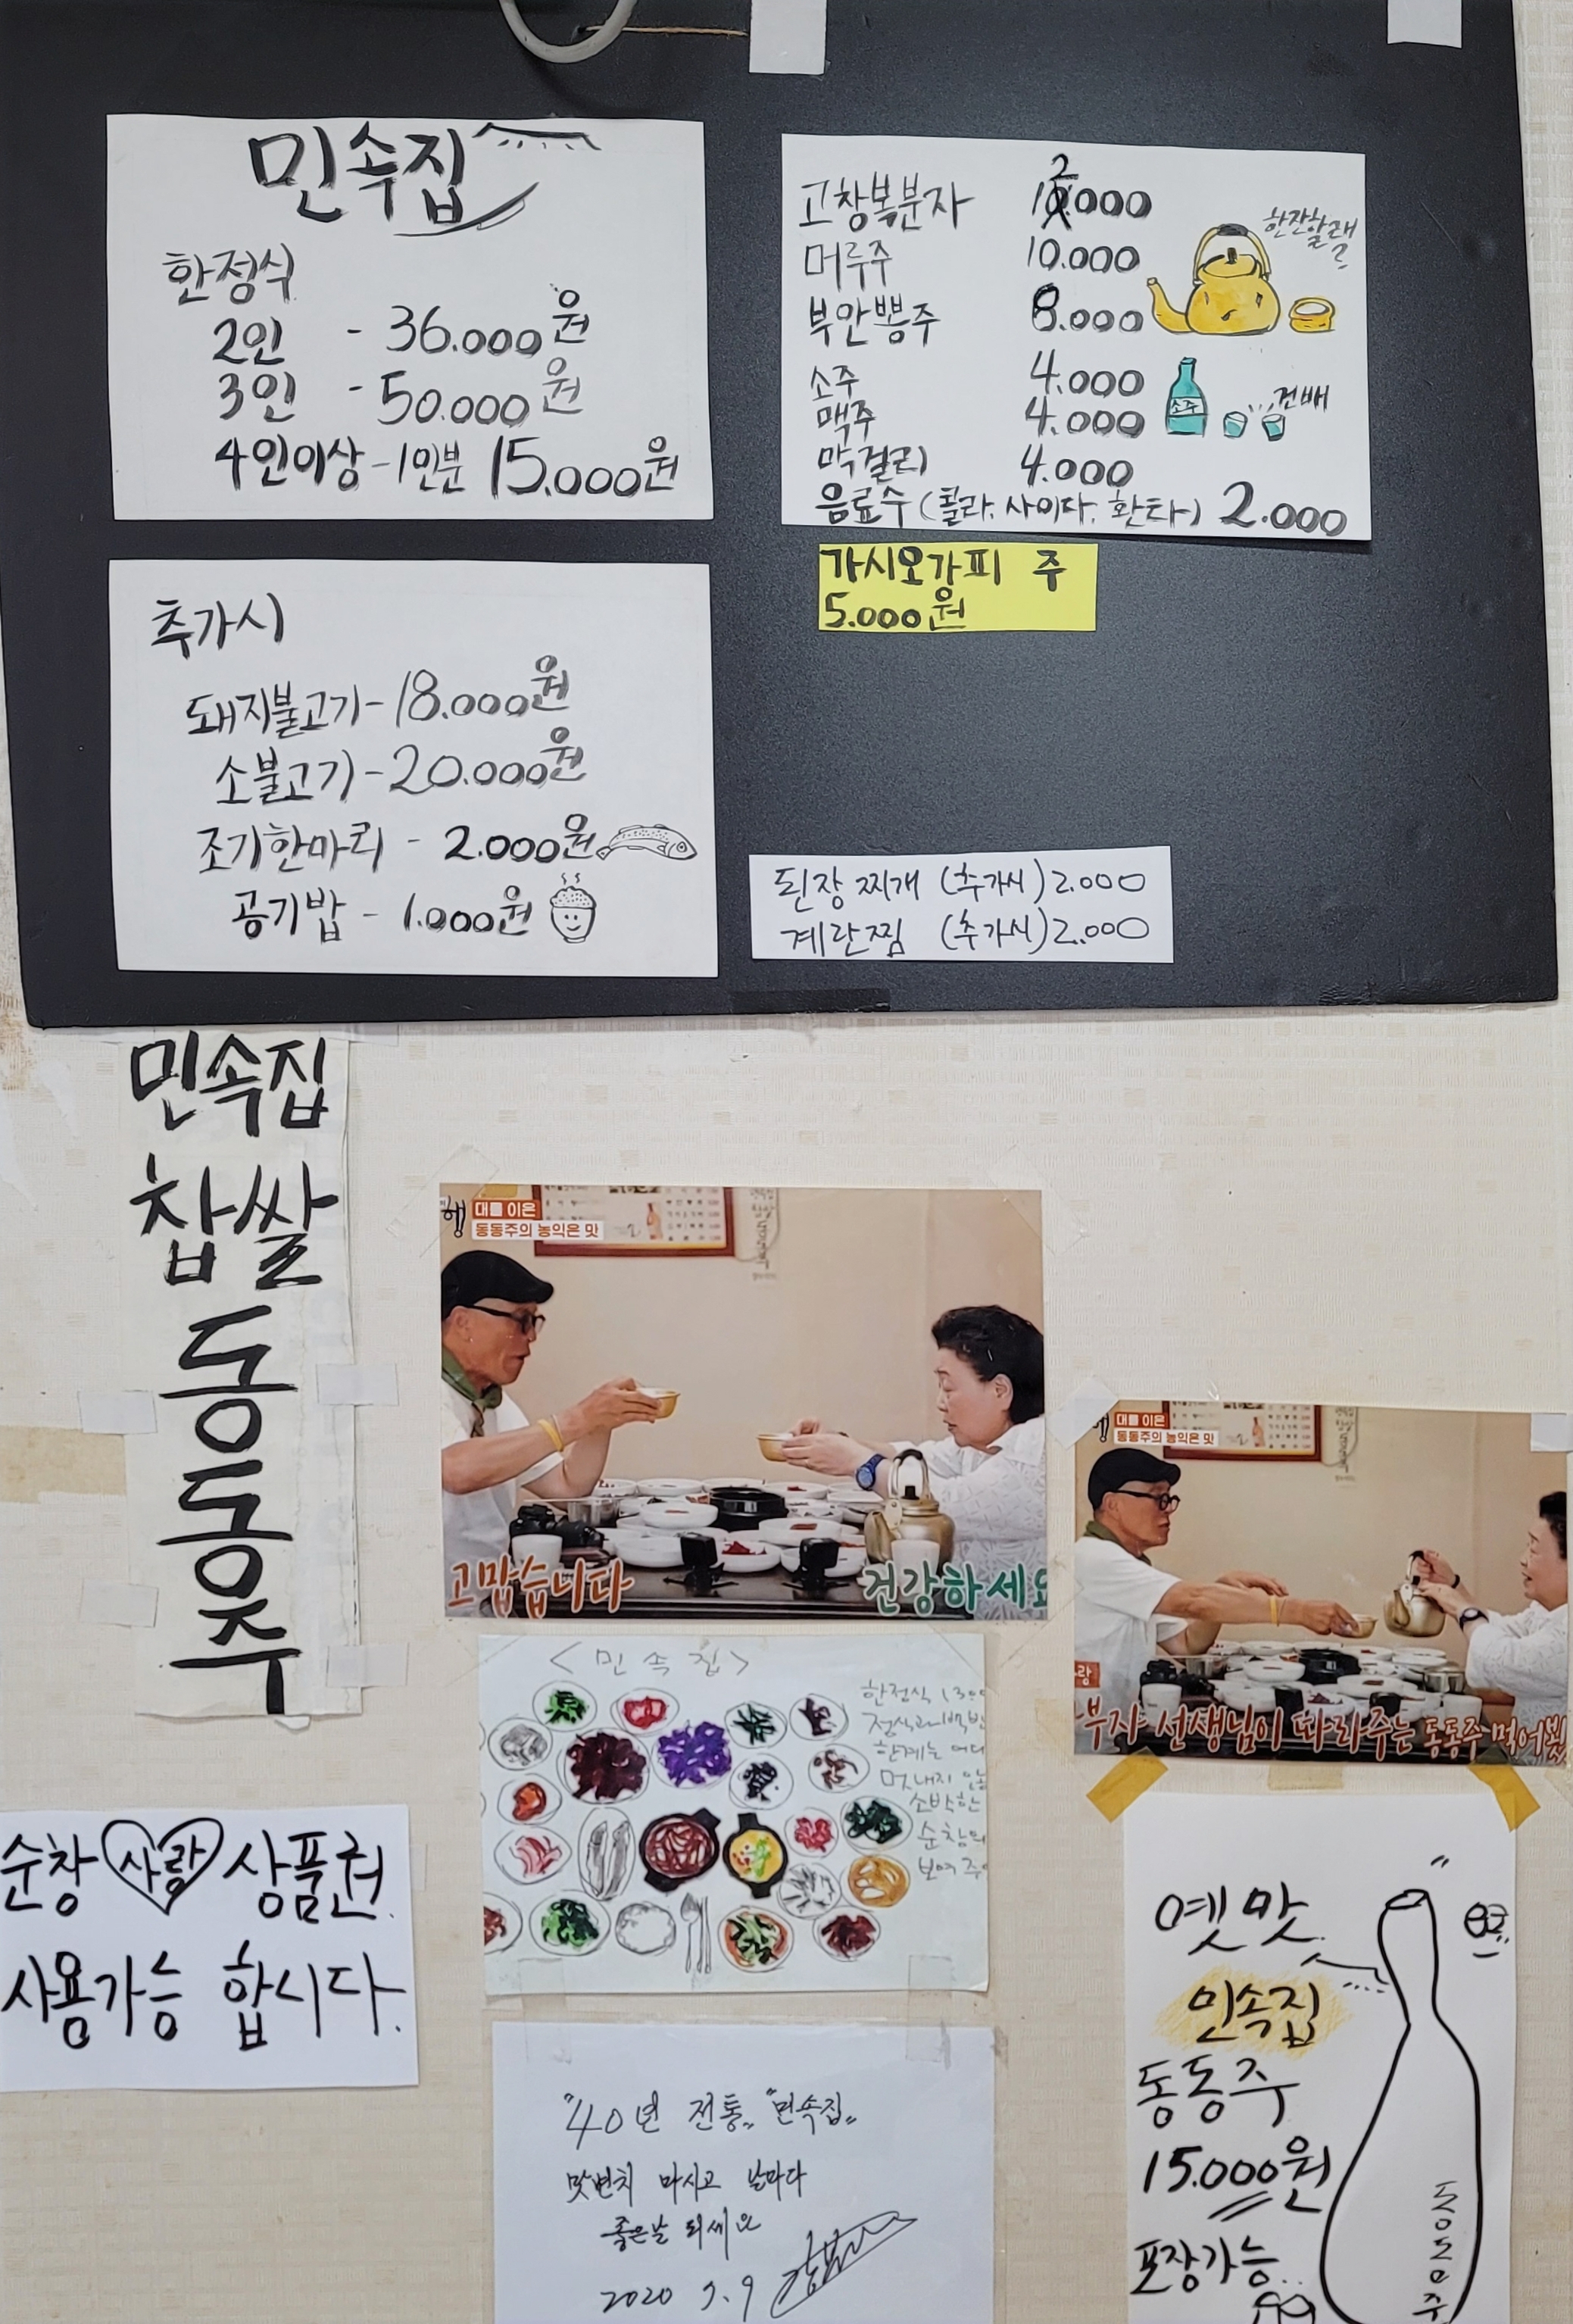 민속집
한정식
2인 - 36.000원
3인 - 50.000원
4인이상 - 1인분 15.000원
고창복분자 12.000
머루주 10.000
부안뽕주 8.000
소주 4.000
맥주 4.000
막걸리 4.000
음료수 (콜라. 사이다. 환타) 2.000
한잔할래
소주
건배
가시오가피 주
5.000원
추가시
돼지불고기 - 18.000원
소불고기 - 20.000원
조기한마리 - 2.000원
공기밥 - 1.000원
된장찌개 (추가시) 2.000
계란찜 (추가시) 2.000
민속집
찹쌀
동
동
주
대를 이은
동동주의 농익은 맛
고맙습니다
건강하세요
대를 이은
동동주의 농익은 맛
부자 선생님이 따라주는 동동주 먹어봤
<민속집>
한정식
정식과 백반
한계는 어디
멋내지 않
소박한
순창의
보여주
순창 사랑 상품권
사용가능 합니다.
"40년 전통" "민속집"
맛변치 마시고 날마다
좋은날 되세요
2020 7.9
옛맛
민속집
동동주
15.000원
포장가능
동동주